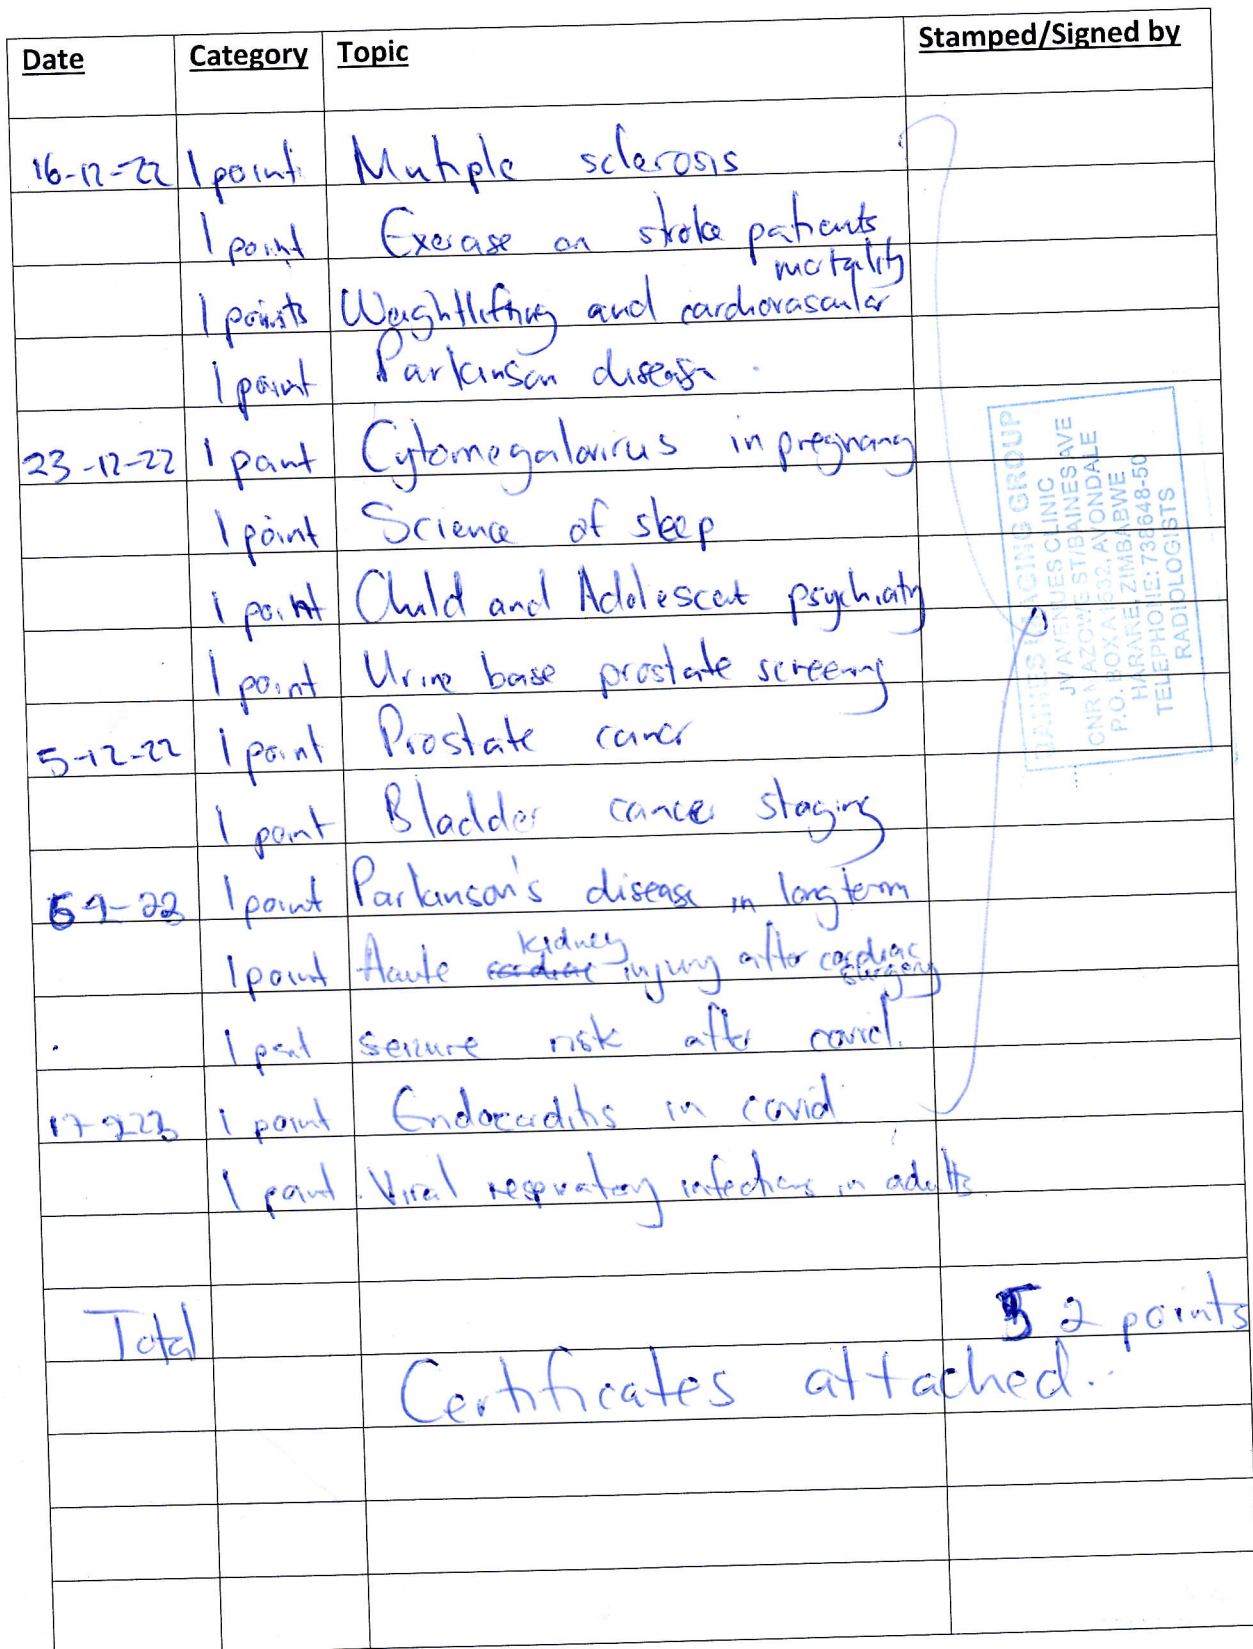 Date Category Topic Stamped/Signed by
16-12-22 1 point Mutiple sclerosis
1 point Exercise on stroke patients
mortality
1 points Weightlifting and cardiovascular
1 point Parkinson disease
23-12-22 1 point Cytomegalovirus in pregnancy
1 point Science of sleep
1 point Child and Adolescent psychiatry
1 point Urine base prostate screening
5-12-22 1 point Prostate cancer
1 point Bladder cancer staging
1 point Parkinson's disease in long term
kidney
1 point Acute cardiac injury after cardiac
surgery
1 point seizure risk after covid.
1 point Endocarditis in covid
1 point Viral respiratory infections in adults
Total 52 points
Certificates attached.
BAINES IMAGING GROUP
JV AVENUES CLINIC
CNR MAZOWE ST/BAINES AVE
P.O. BOX A1632, AVONDALE
HARARE, ZIMBABWE
TELEPHONE: 738648-50
RADIOLOGISTS